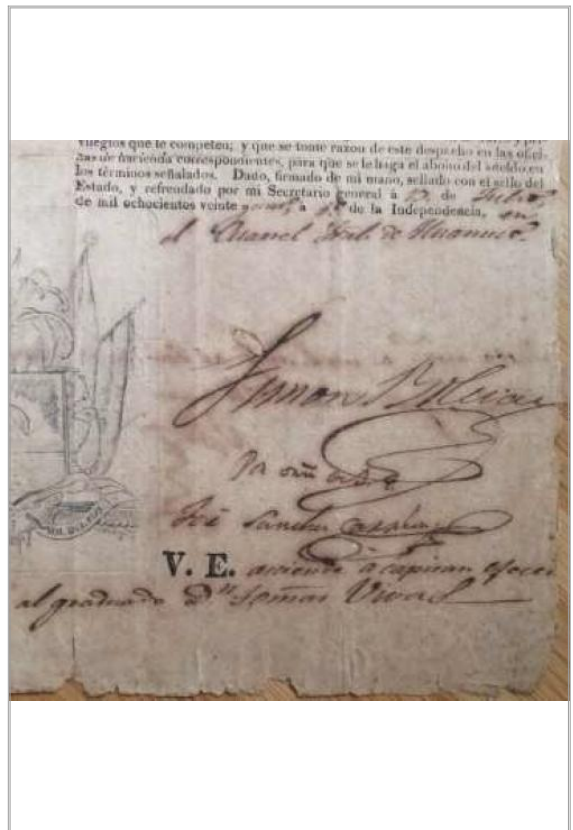 vilegios que le competen; y que se tome razon de este despacho en las ofici-
nas de hacienda correspondientes, para que se le haga el abono del sueldo en
los términos señalados. Dado, firmado de mi mano, sellado con el sello del
Estado, y refrendado por mi Secretario general á de Julio
de mil ochocientos veinte á de la Independencia, en
el Cuartel Jral. de Huanuco.
Simon Bolivar
José Sanchez Carrion
V. E. asciende a capitan efec
al graduado Dn Vivas